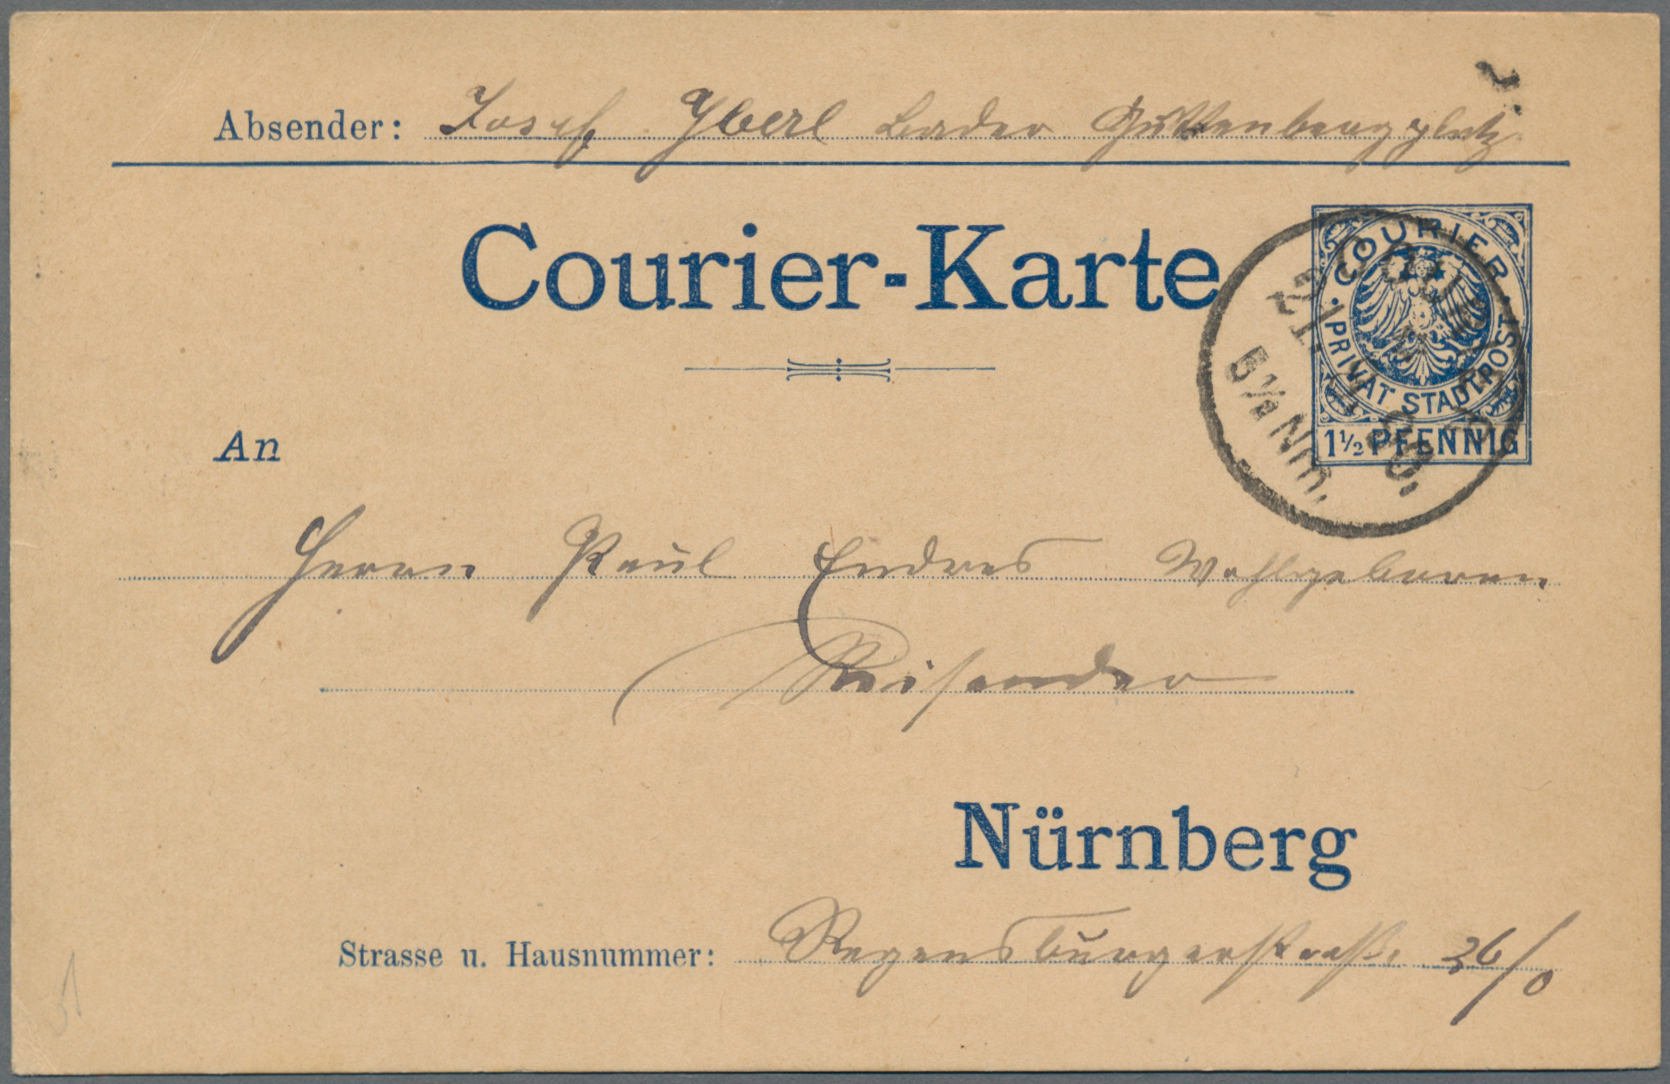 Absender: Josef Yberl Bader Guttenbergplatz
Courier-Karte
COURIER
PRIVAT STADTPOST
1½ PFENNIG
5½ Nm.
An
Herrn Paul Endres Wohlgeboren
Reisender
Nürnberg
Strasse u. Hausnummer: Regensburgerstraße 36/0